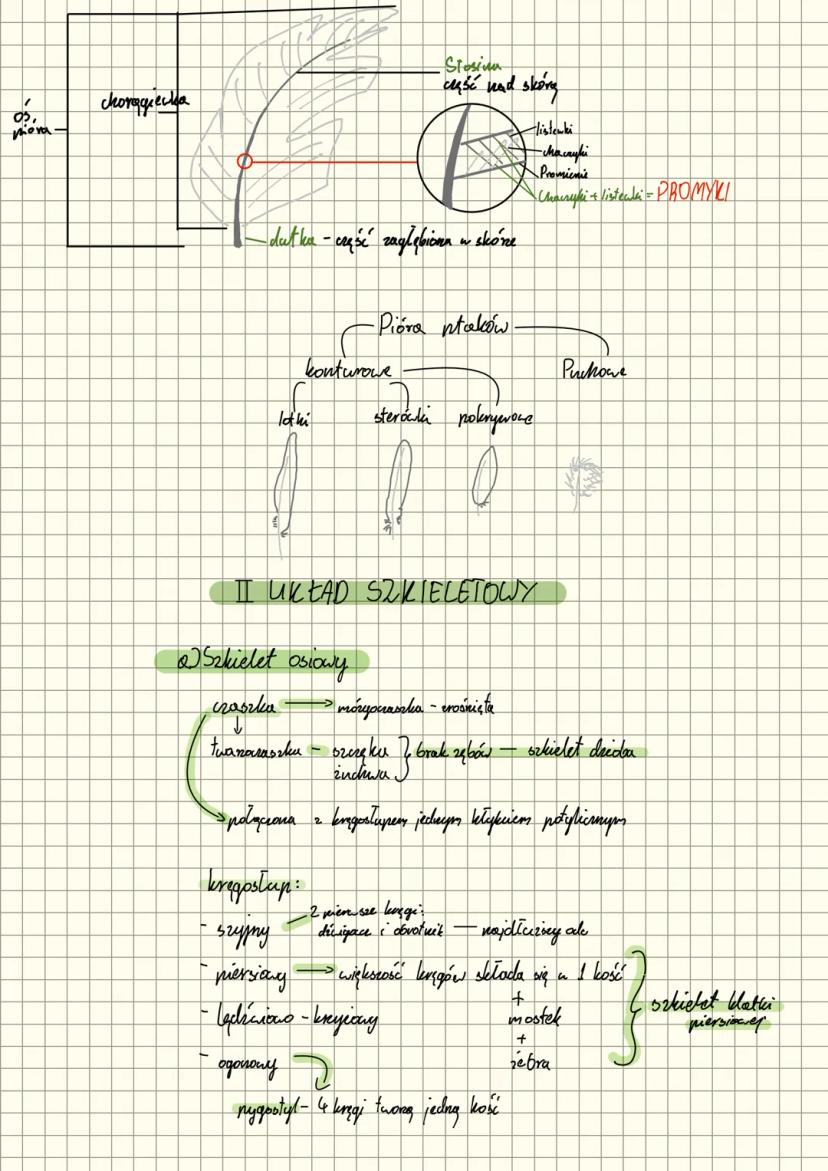 Stosina
część nad skórą
oś
pióra
chorągiewka
listewki
haczyki
Promienie
haczyki + listewki = PROMYKI
dutka – część zagłębiona w skórze
Pióra ptaków
konturowe
Puchowe
lotki
sterówki
pokrywowe
II UKŁAD SZKIELETOWY
a) Szkielet osiowy
czaszka → mózgoczaszka – zrośnięta
twarzoczaszka – szczęka } brak zębów — szkielet dzioba
żuchwa
połączona z kręgosłupem jednym kłykciem potylicznym
kręgosłup:
2 pierwsze kręgi:
- szyjny dźwigacz i obrotnik — najdłuższy odc
- piersiowy → większość kręgów składa się w 1 kość
+
- lędźwiowo - krzyżowy mostek
szkielet klatki
piersiowej
+
- ogonowy żebra
pygostyl – 4 kręgi tworzą jedną kość